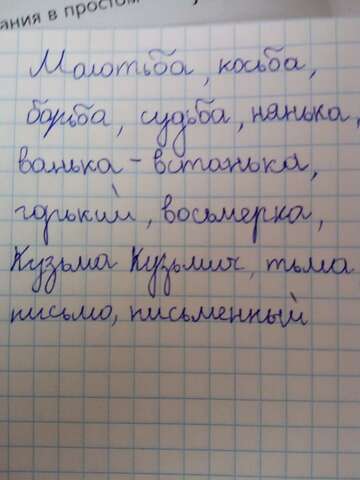 ания в простом
Молотьба, косьба,
борьба, судьба, нянька,
ванька-встанька,
горький, восьмерка,
Кузьма Кузьмич, тьма
письмо, письменный